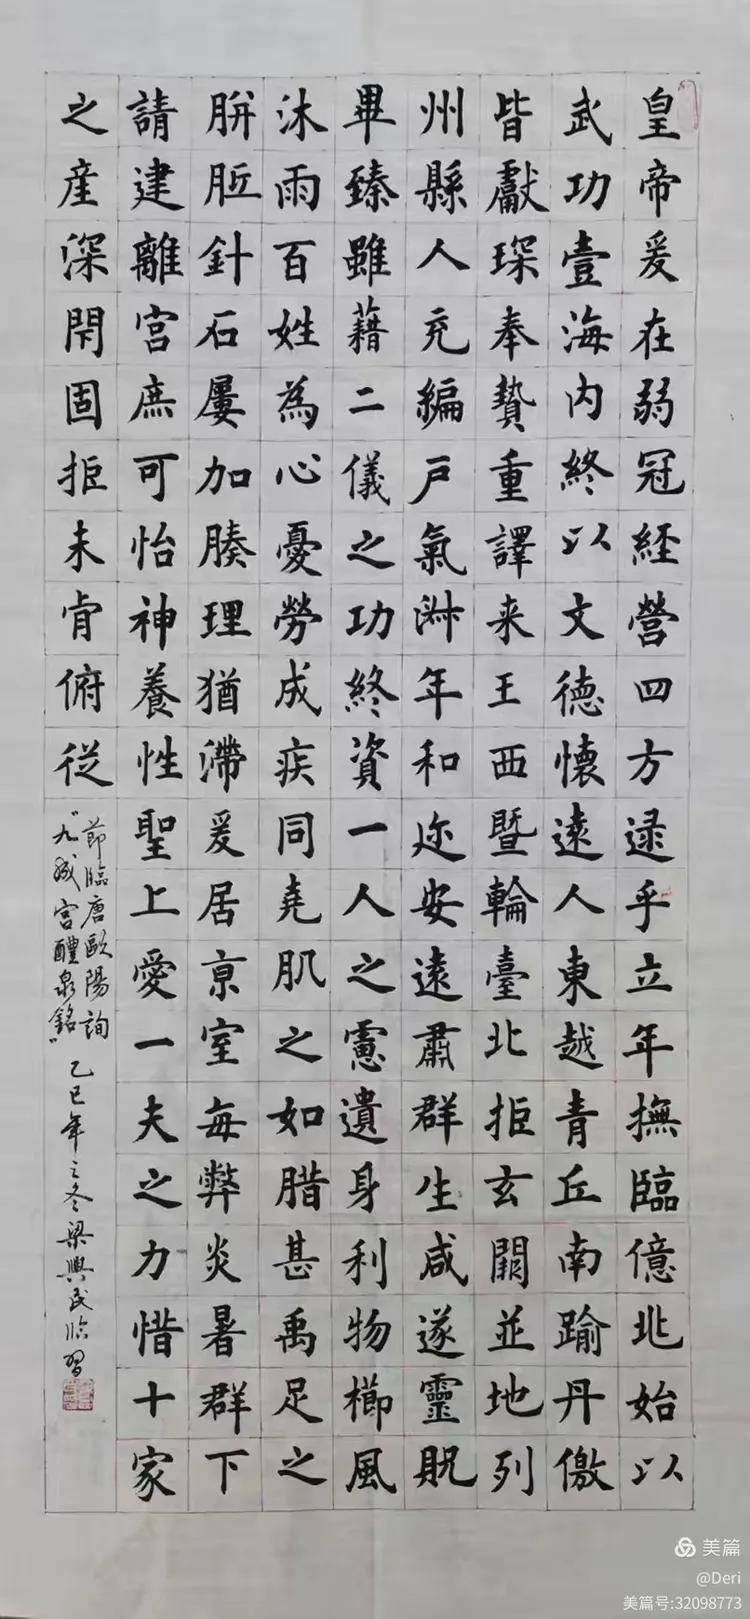 皇帝爰在弱冠經營四方逮乎立年撫臨億兆始以
武功壹海内終以文德懷遠人東越青丘南踰丹儌
皆獻琛奉贄重譯来王西暨輪臺北拒玄闕並地列
州縣人充編戶氣淑年和迩安遠肅群生咸遂靈貺
畢臻雖藉二儀之功終資一人之慮遺身利物櫛風
沐雨百姓為心憂勞成疾同堯肌之如腊甚禹足之
胼胝針石屢加腠理猶滯爰居京室每弊炎暑群下
請建離宮庶可怡神養性聖上愛一夫之力惜十家
之産深閇固拒未肯俯従
節臨唐歐陽詢
"九成宮醴泉銘"
乙巳年之冬梁興民臨習
美篇
@Deri
美篇号:32098773